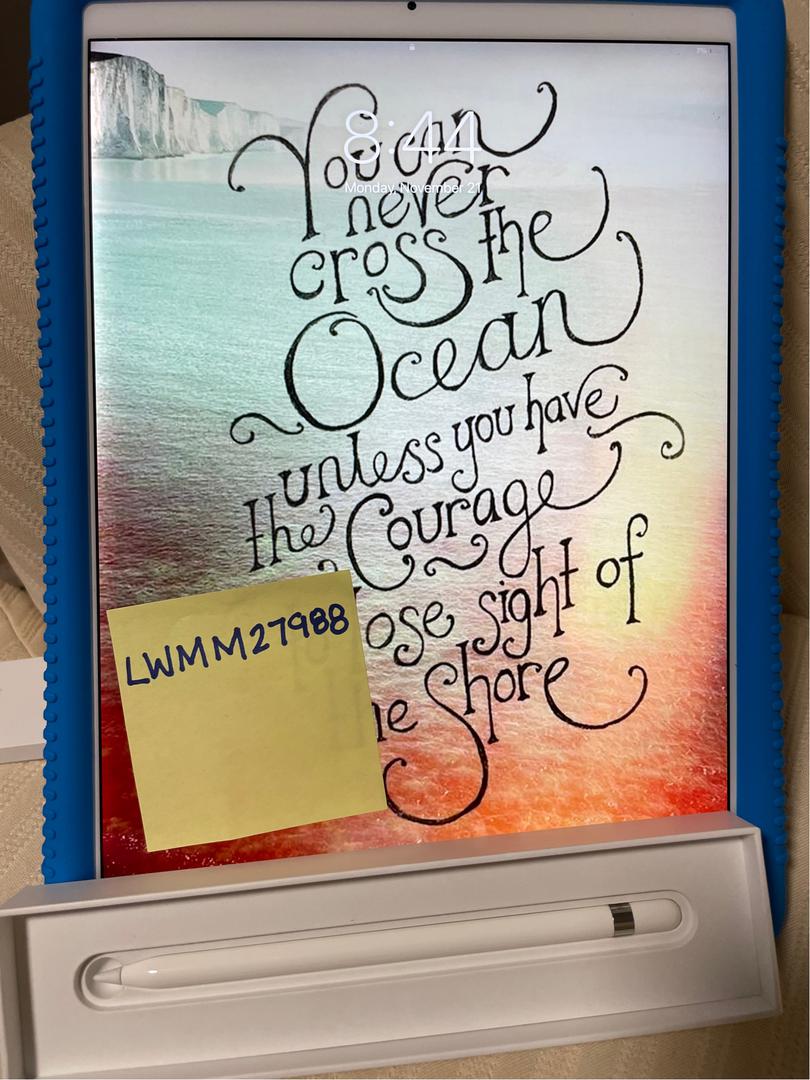 8:44
Monday, November 21
You can
never
cross the
Ocean
unless you have
the Courage
ose sight of
he Shore
LWMM27988